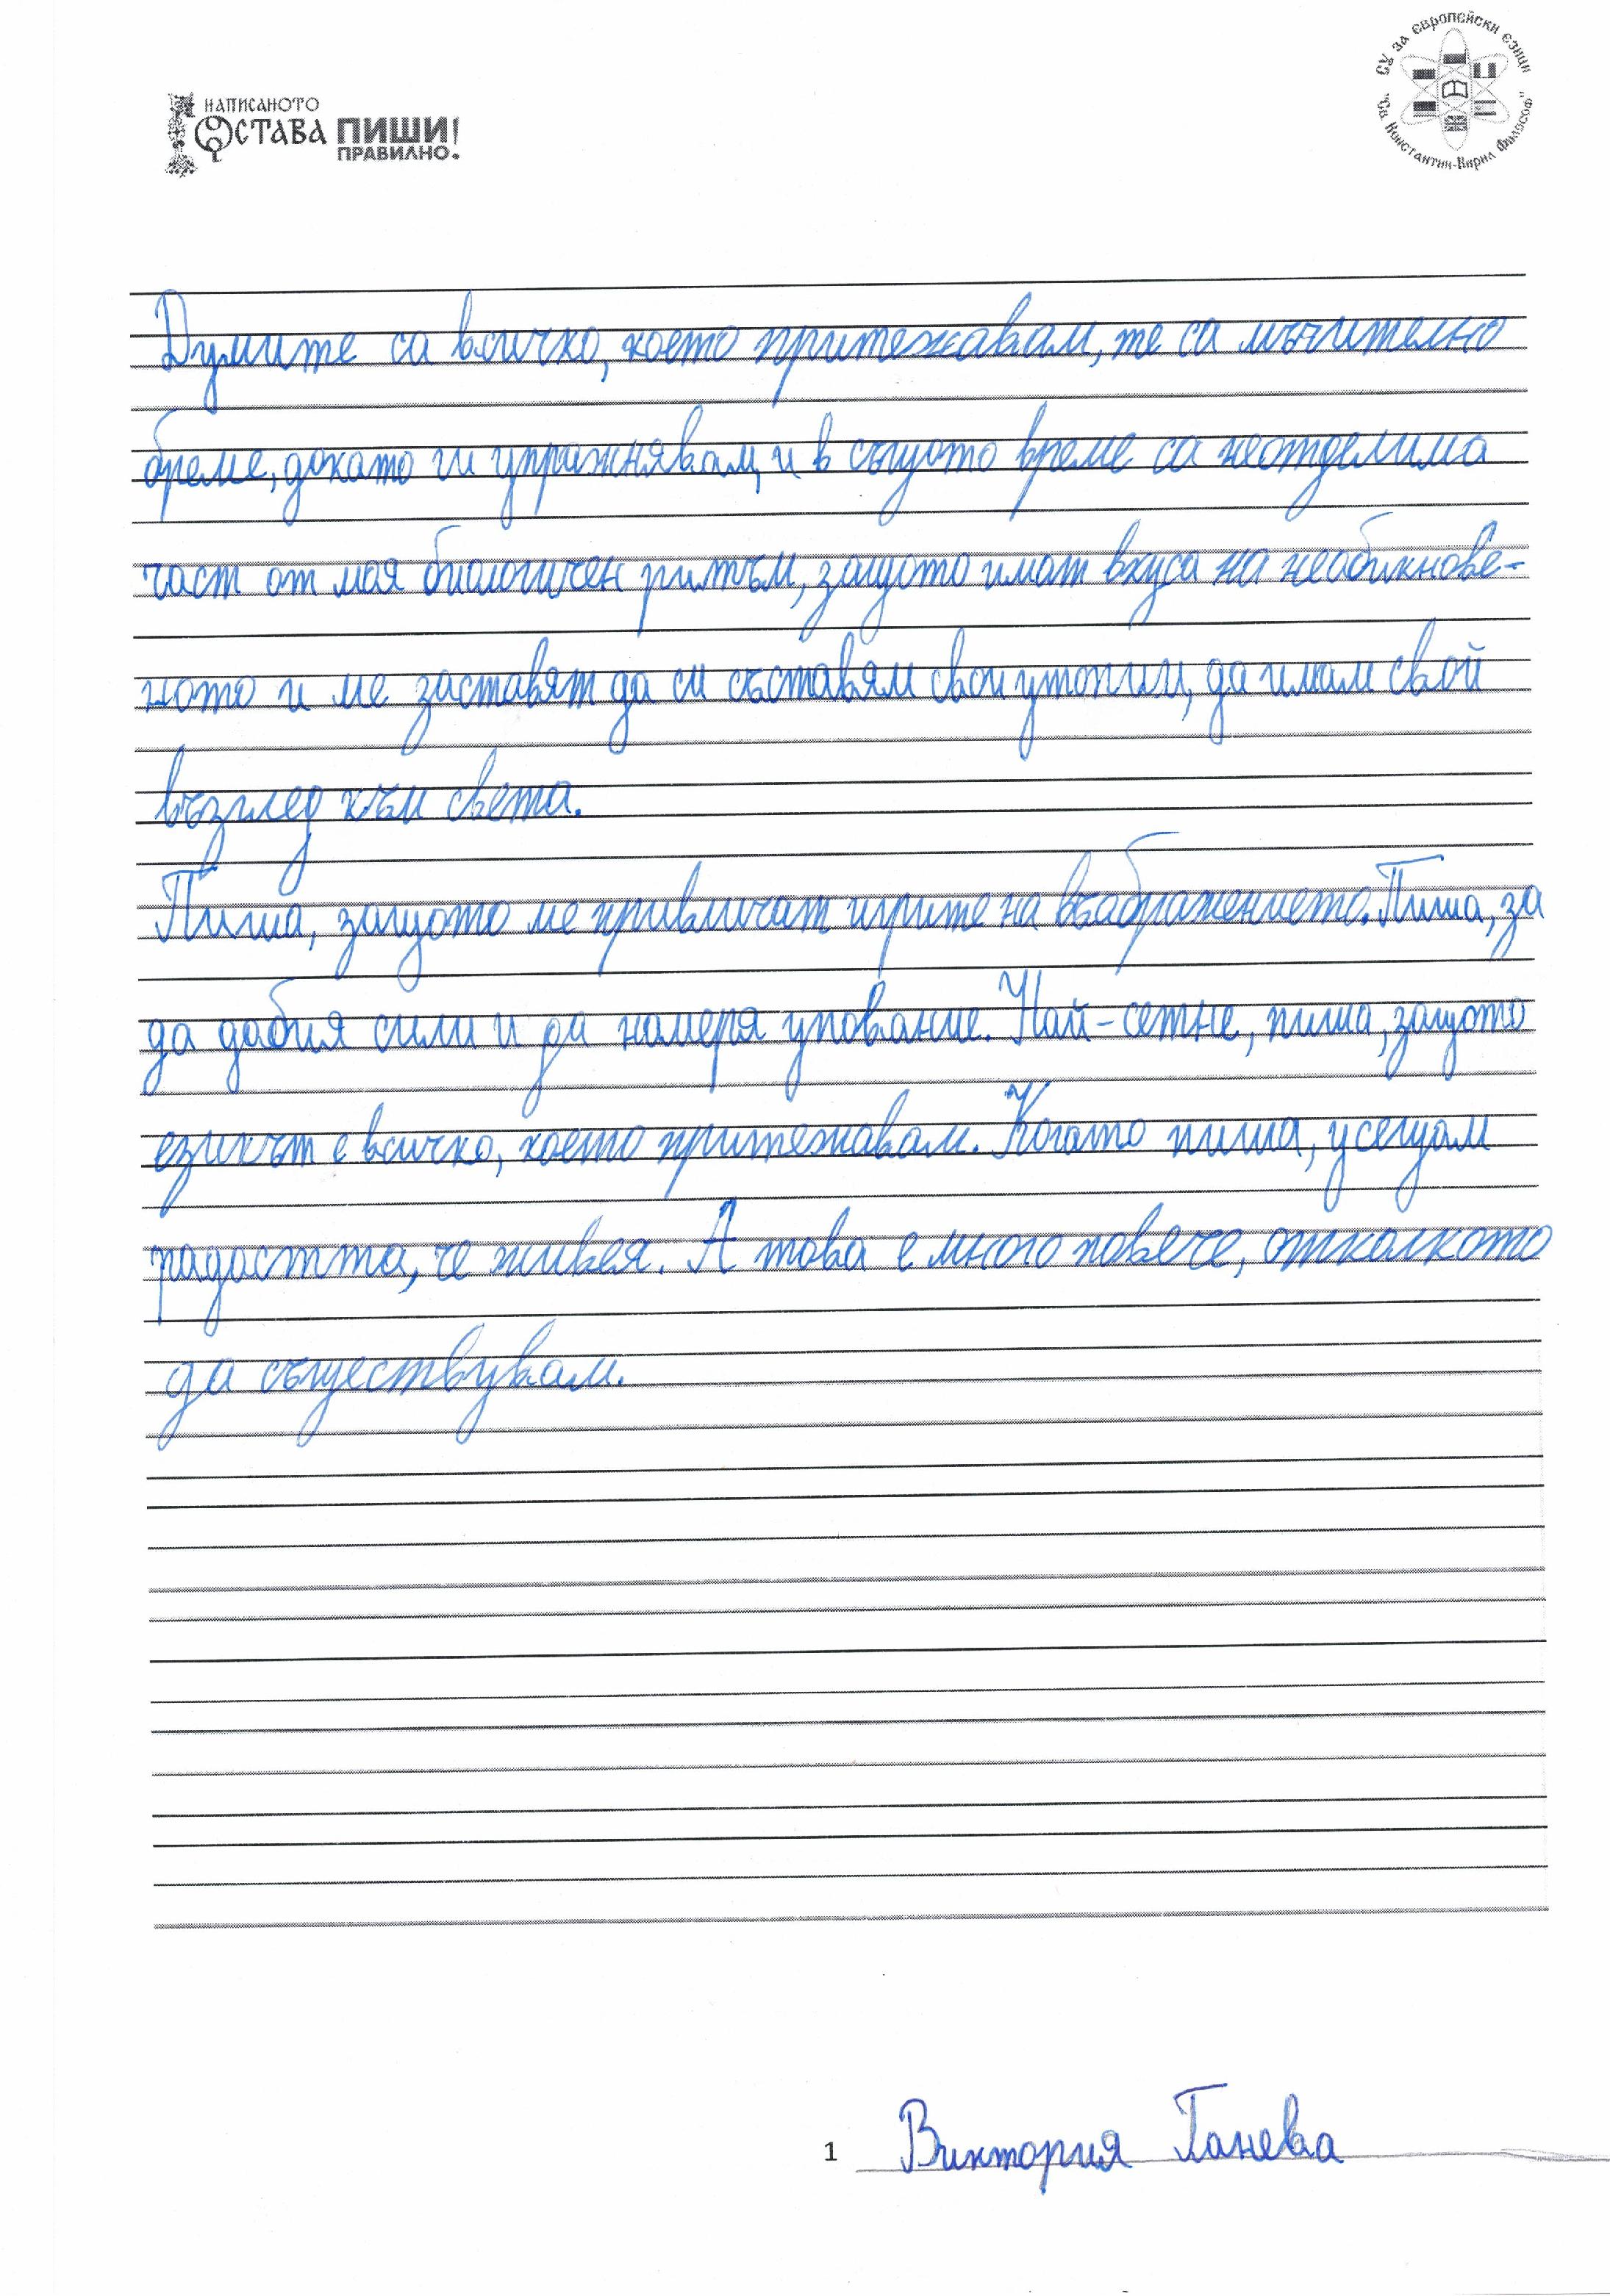 НАПИСАНОТО
ОСТАВА ПИШИ
ПРАВИЛНО.
СУ за европейски езици
"Св. Константин-Кирил Философ"
Думите са всичко, което притежавам, те са мъчително
бреме, докато ги упражнявам, и в същото време са неотделима
част от моя биологичен ритъм, защото имат вкуса на необикнове-
ното и ме заставят да си съставям свои утопии, да имам свой
възглед към света.
Пиша, защото ме привличат игрите на въображението. Пиша, за
да добия сили и да намеря упование. Най-сетне, пиша, защото
езикът е всичко, което притежавам. Когато пиша, усещам
радостта, че живея. А това е много повече, отколкото
да съществувам.
1 Виктория Ганева